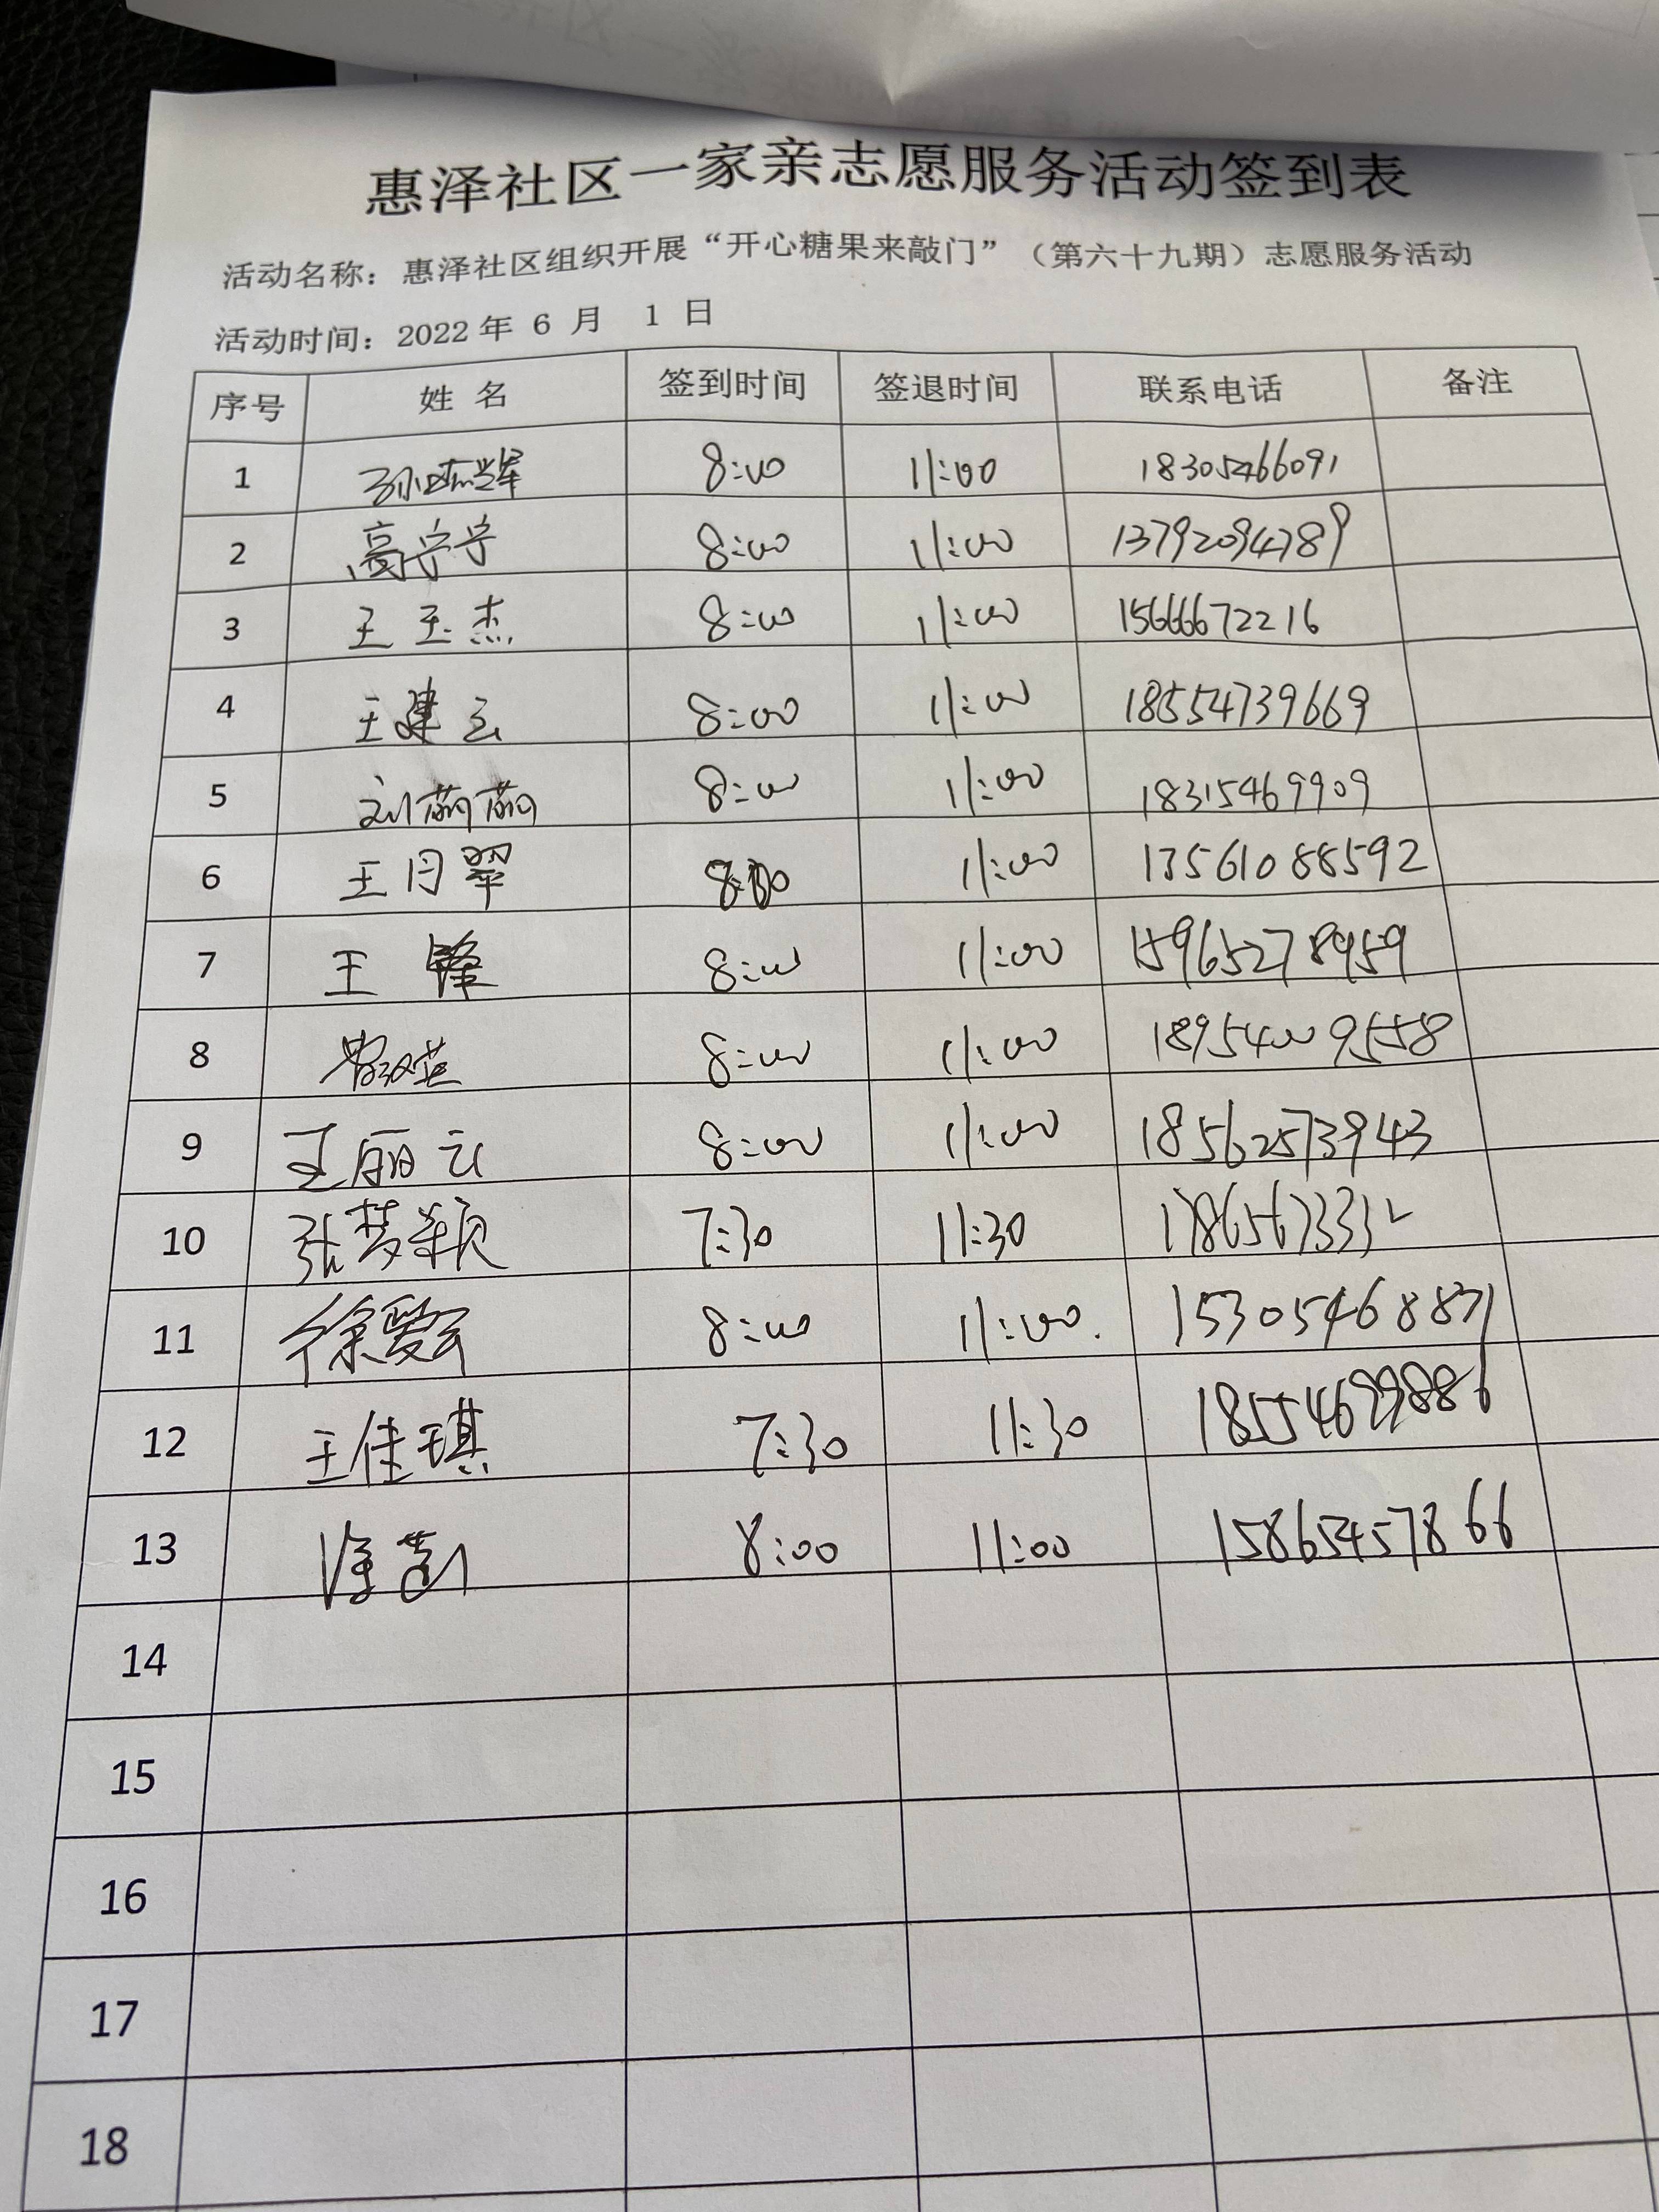 惠泽社区一家亲志愿服务活动签到表
活动名称：惠泽社区组织开展“开心糖果来敲门”（第六十九期）志愿服务活动
活动时间：2022年 6 月 1 日
序号 姓 名 签到时间 签退时间 联系电话 备注
1 8:00 11:00 18305466091
2 高宁宁 8:00 11:00 13792094789
3 王玉杰 8:00 11:00 15666672216
4 王建云 8:00 11:00 18554739669
5 刘萌萌 8:00 11:00 18315469909
6 王月翠 8:00 11:00 13561088592
7 王 锋 8:00 11:00 15965278959
8 8:00 11:00 18954009558
9 王丽云 8:00 11:00 18562573943
10 张梦颖 7:30 11:30
11 徐爱云 8:00 11:00. 15305468871
12 王佳琪 7:30 11:30 18554699886
13 8:00 11:00 15865457866
14
15
16
17
18